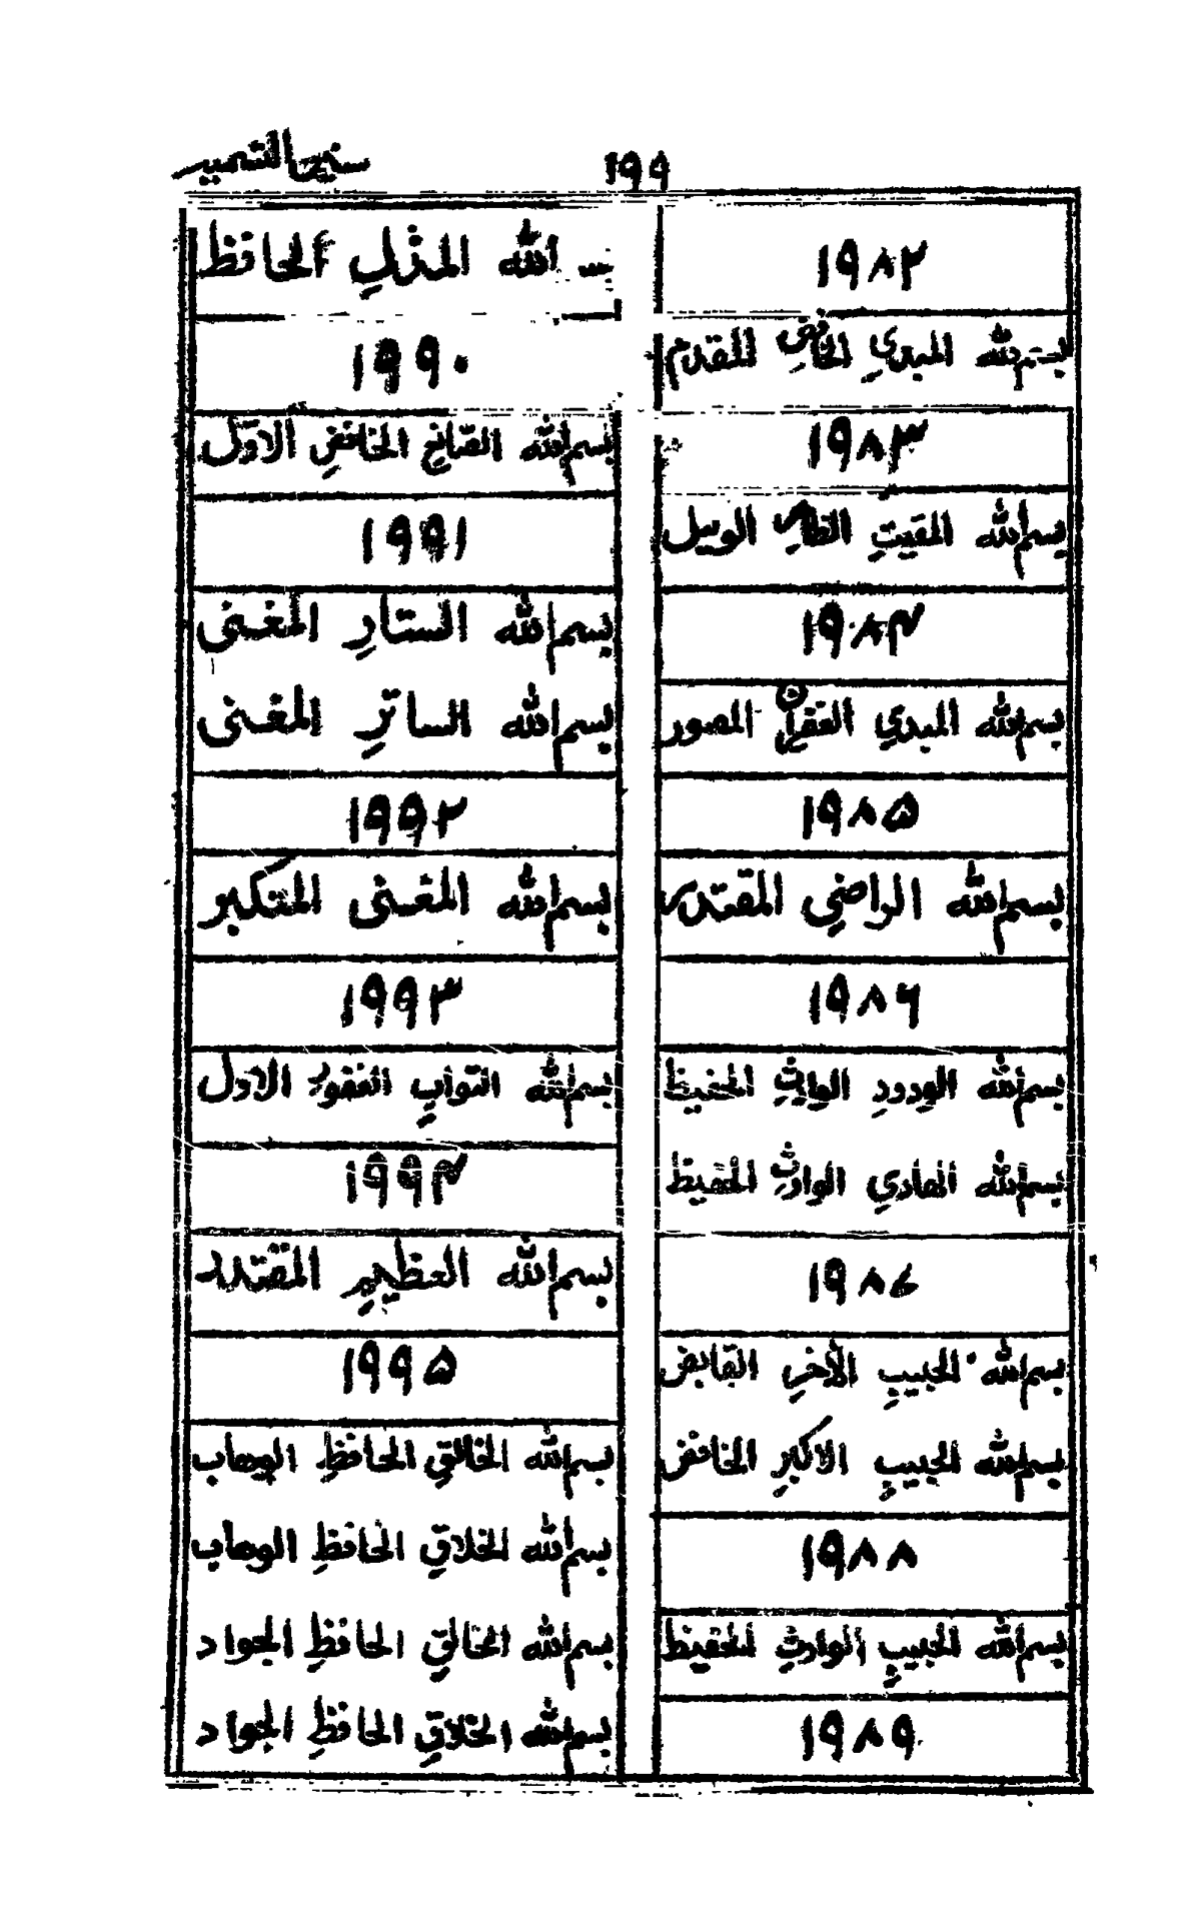 ۱۹۹
۱۹۸۲
بسم الله المبدي الخافض المقدم
۱۹۸۳
بسم الله المقيت الوكيل
۱۹۸۴
بسم الله المبدي المصور
۱۹۸۵
بسم الله الراضي المقتدر
۱۹۸۶
بسم الله الودود الوارث الحفيظ
بسم الله الهادي الوارث الحفيظ
۱۹۸۷
بسم الله الحبيب الآخر القابض
بسم الله الحبيب الاكبر الخافض
۱۹۸۸
بسم الله الحبيب الوارث الحفيظ
۱۹۸۹
الله المذل الحافظ
۱۹۹۰
بسم الله الصانع الخافض الاول
۱۹۹۱
بسم الله الستار المغنى
بسم الله الساتر المغنى
۱۹۹۲
بسم الله المغنى المتكبر
۱۹۹۳
بسم الله التواب الغفور الاول
۱۹۹۴
بسم الله العظيم المقتدر
۱۹۹۵
بسم الله الخالق الحافظ الوهاب
بسم الله الخلاق الحافظ الوهاب
بسم الله الخالق الحافظ الجواد
بسم الله الخلاق الحافظ الجواد